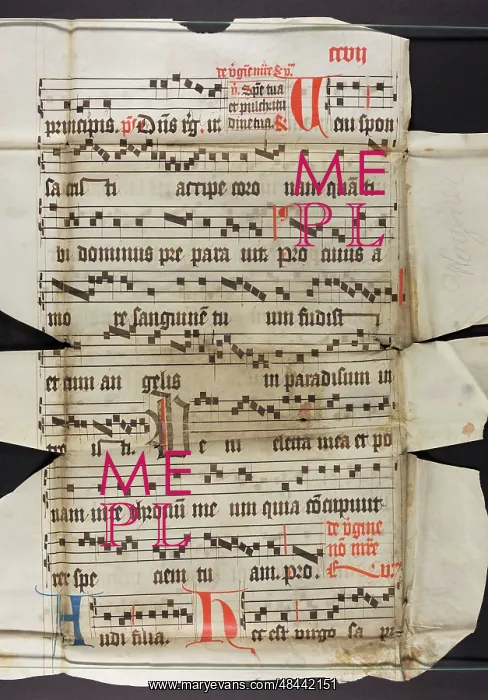 ccvij
de v̄gīe mr̄e & v̄.
principis. p̄s Dn̄s rēg. ut V. Spē tua Ueni spon
et pulchritu
dine tua.
sa cris ti accipe coro nam quā ti
bi dominus pre para uit. Pro cuius a
mo re sanguinē tu um fudisti
et cum an gelis in paradisum in
tro isti. Ve ni electa mea et po
nam in te thronū me um quia cōcupiuit
rex spe ciem tu am. pro.
de v̄gine
nō mr̄e
Audi filia. Hec est virgo sa pi
ME
PL
ME
PL
www.maryevans.com/48442151